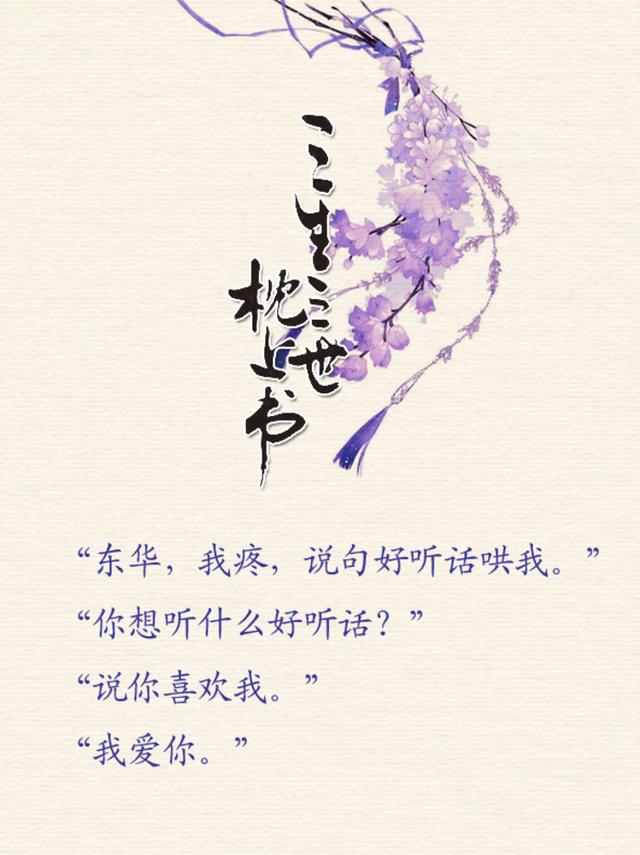 三生三世
枕上书
“东华，我疼，说句好听话哄我。”
“你想听什么好听话？”
“说你喜欢我。”
“我爱你。”